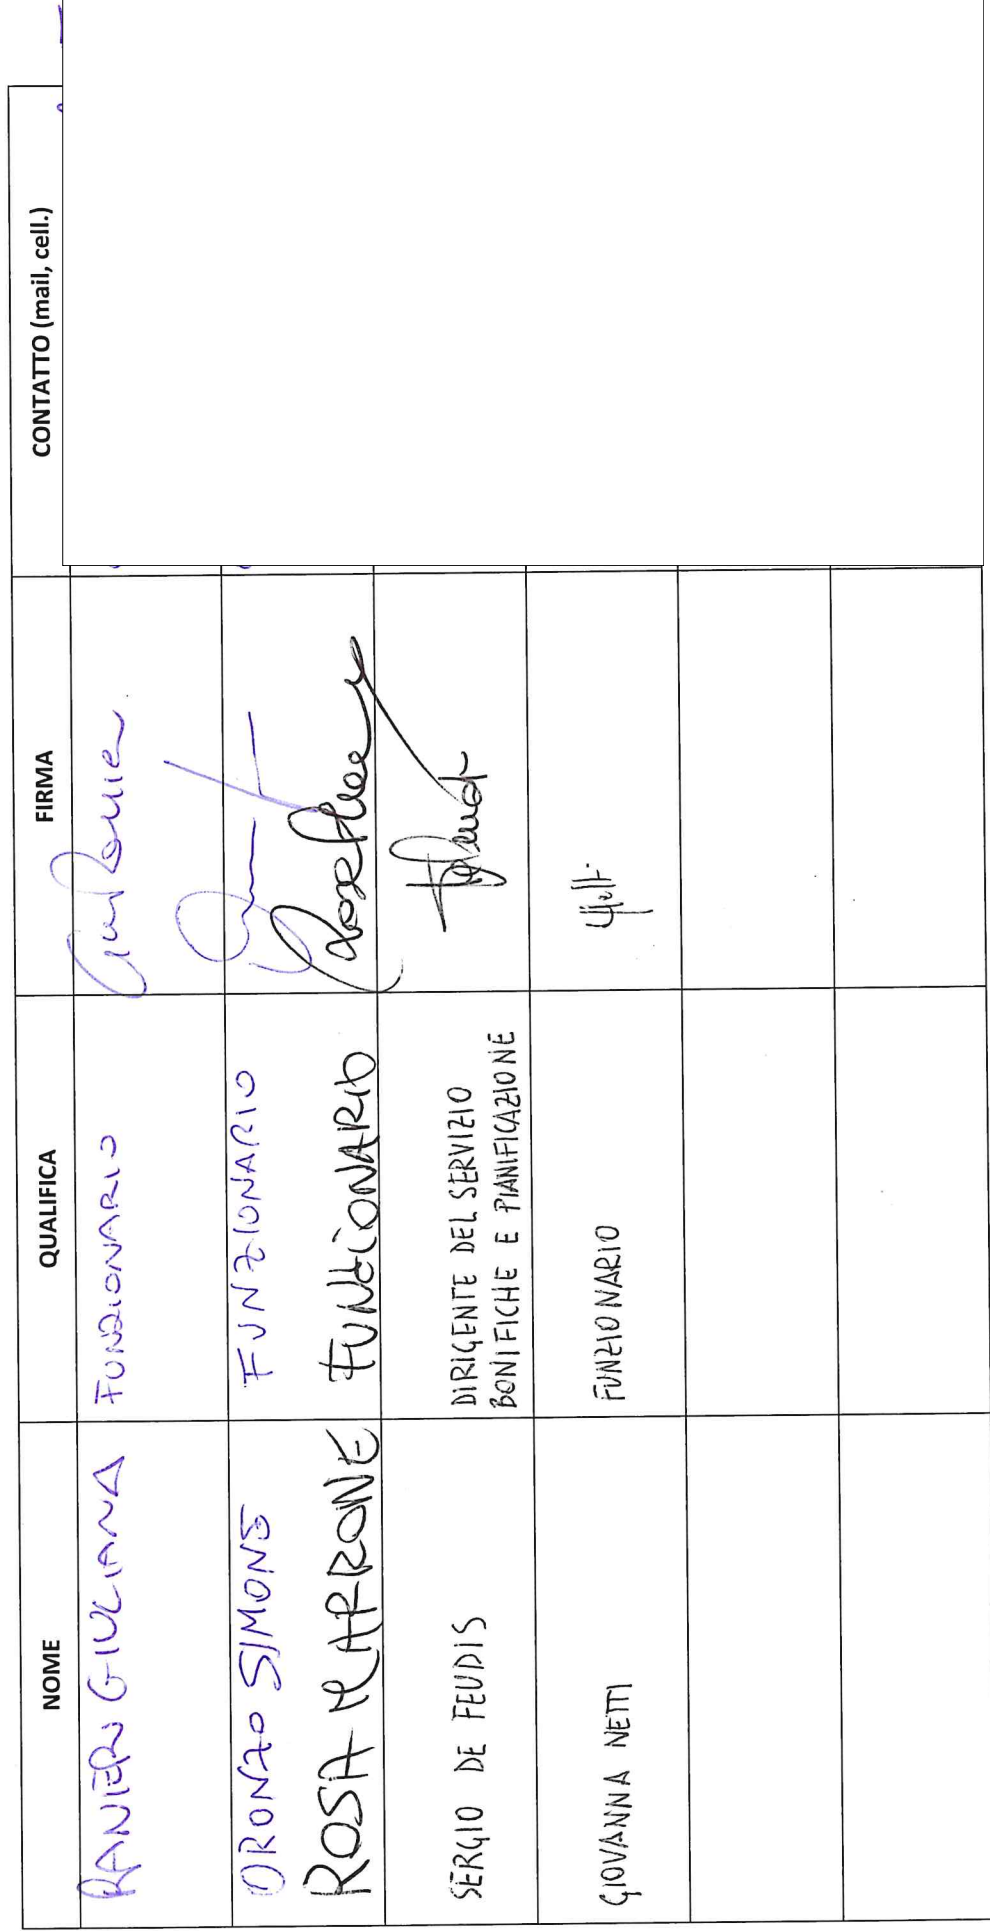 NOME QUALIFICA FIRMA CONTATTO (mail, cell.)
RANIERI GIULIANA FUNZIONARIO
ORONZO SIMONE FUNZIONARIO
ROSA MARRONE FUNZIONARIO
SERGIO DE FEUDIS DIRIGENTE DEL SERVIZIO
BONIFICHE E PIANIFICAZIONE
GIOVANNA NETTI FUNZIONARIO